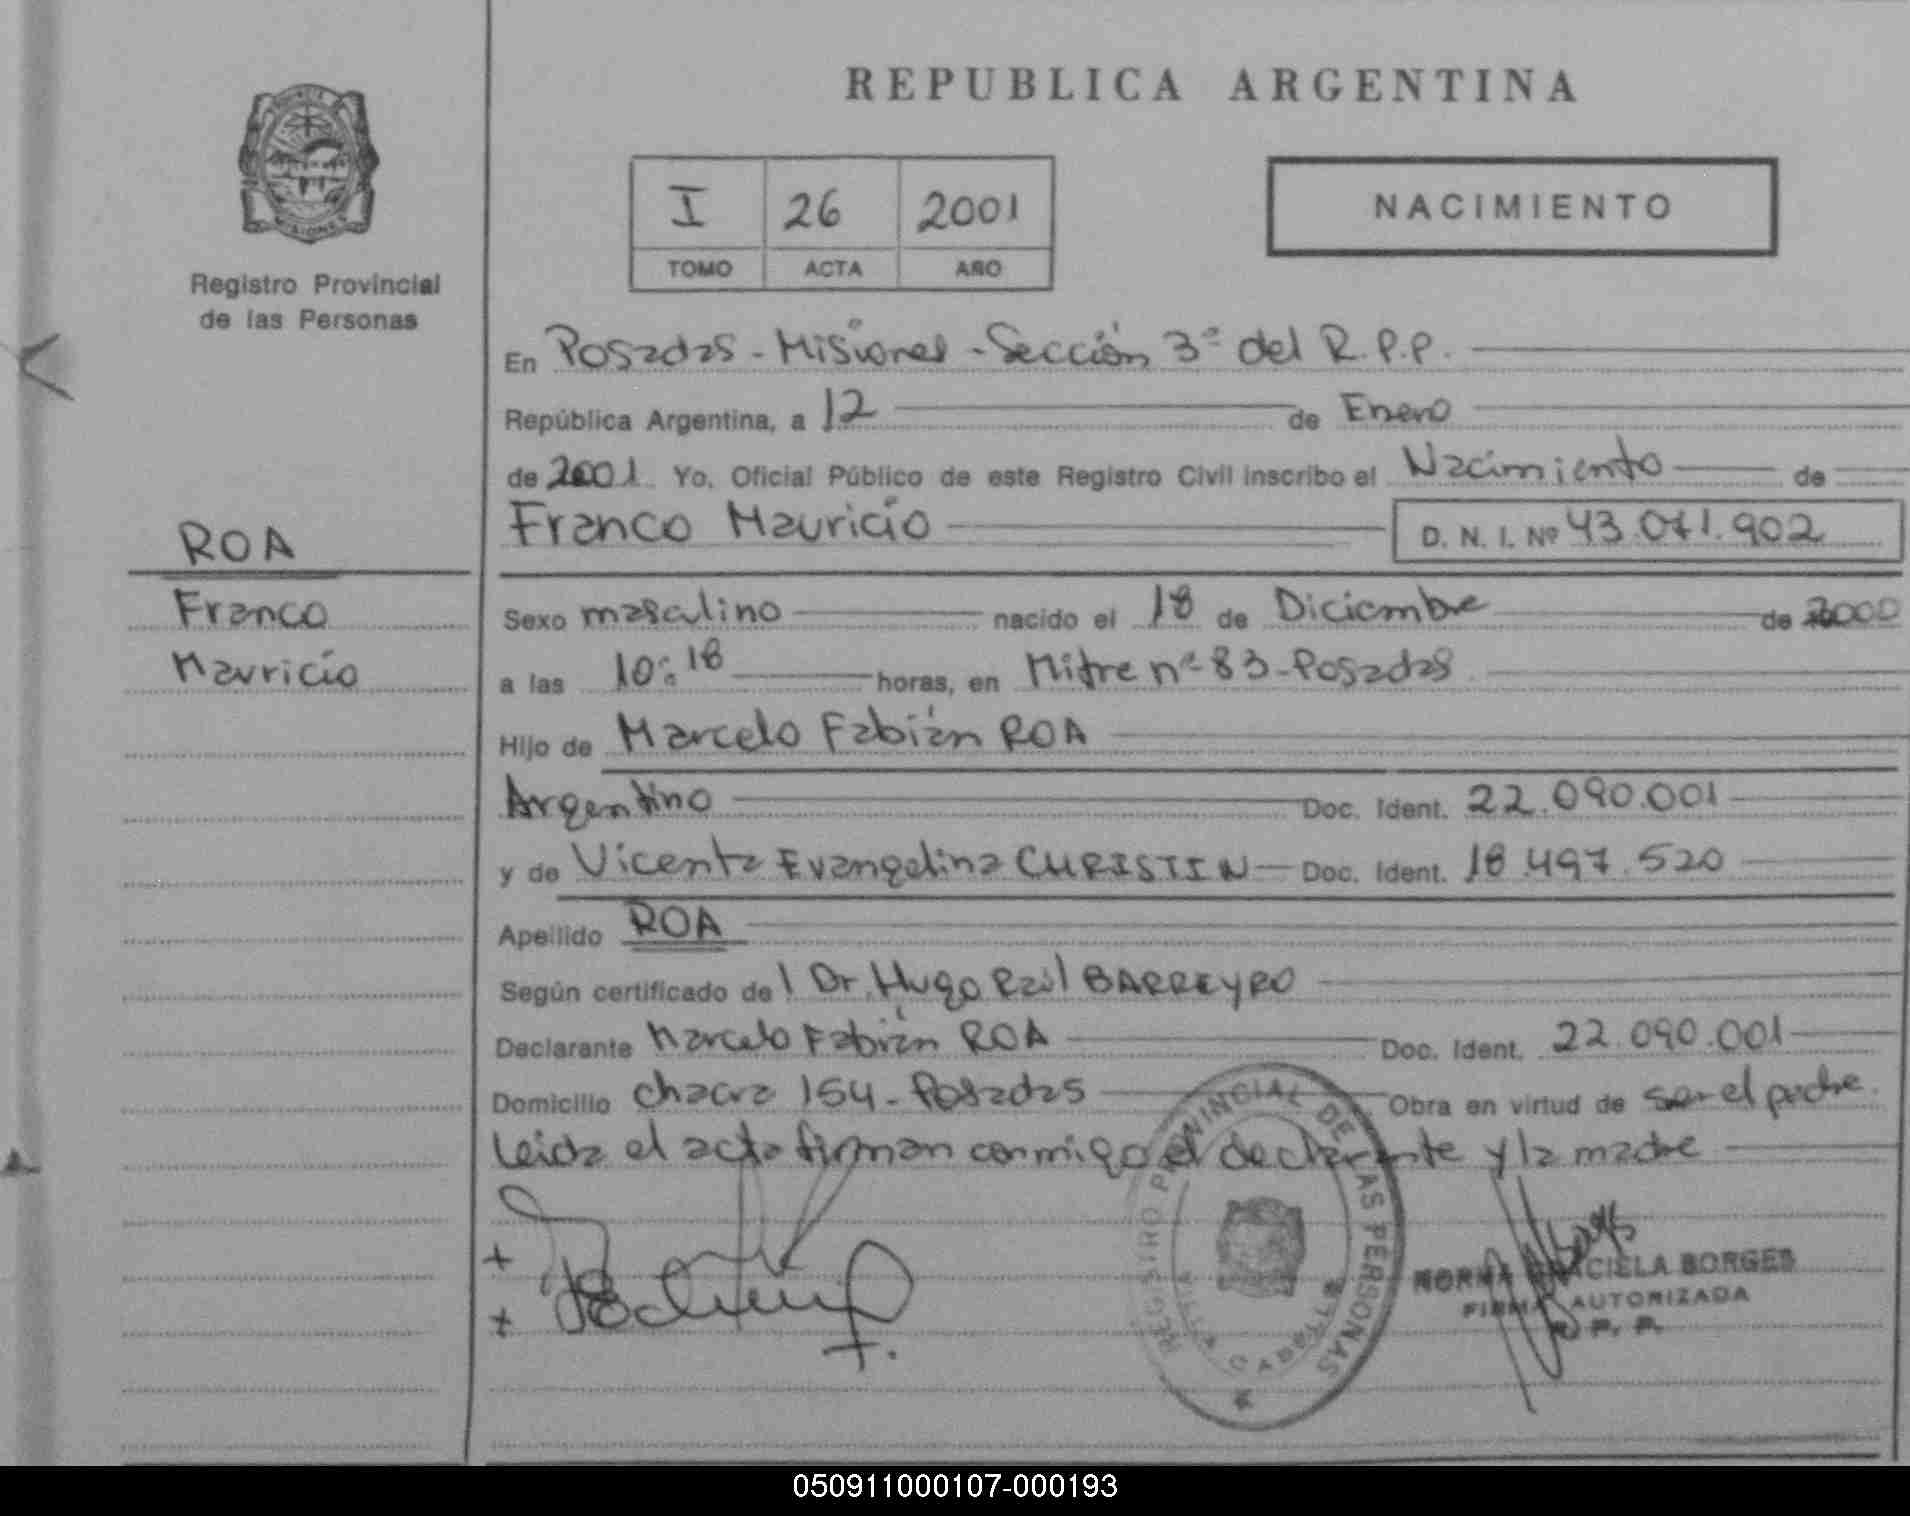 REPUBLICA ARGENTINA
I 26 2001
TOMO ACTA AÑO
NACIMIENTO
Registro Provincial
de las Personas
ROA
Franco
Mauricio
En Posadas - Misiones - Sección 3ª del R.P.P.
República Argentina, a 12 de Enero
de 2001 Yo, Oficial Público de este Registro Civil inscribo el Nacimiento de
Franco Mauricio D. N. I. Nº 43.071.902
Sexo masculino nacido el 18 de Diciembre de 2000
a las 10:18 horas, en Mitre nº 83 - Posadas
Hijo de Marcelo Fabián ROA
Argentino Doc. Ident. 22.090.001
y de Vicenta Evangelina CHRISTIN Doc. Ident. 18.497.520
Apellido ROA
Según certificado del Dr. Hugo Raúl BARREYRO
Declarante Marcelo Fabián ROA Doc. Ident. 22.090.001
Domicilio chacra 154 - Posadas Obra en virtud de ser el padre.
Leida el acta firman conmigo el declarante y la madre
REGISTRO PROVINCIAL DE LAS PERSONAS
VILLA CABELLO
NORMA GRACIELA BORGES
FIRMA AUTORIZADA
R. P. P.
050911000107-000193